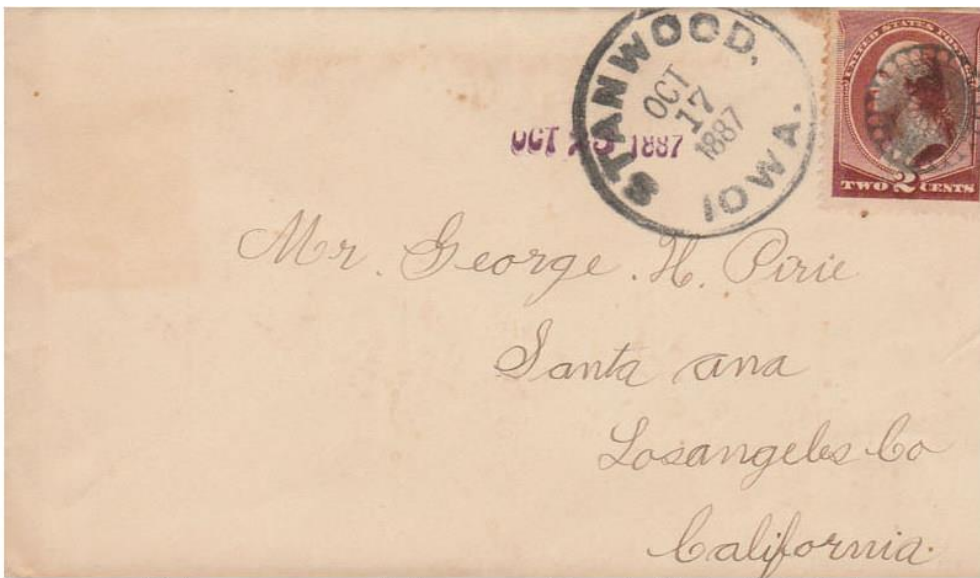 STANWOOD, IOWA.
OCT
17
1887
OCT 1887
UNITED STATES POST
TWO 2 CENTS
Mr. George. H. Pirie
Santa ana
Losangeles Co
California.